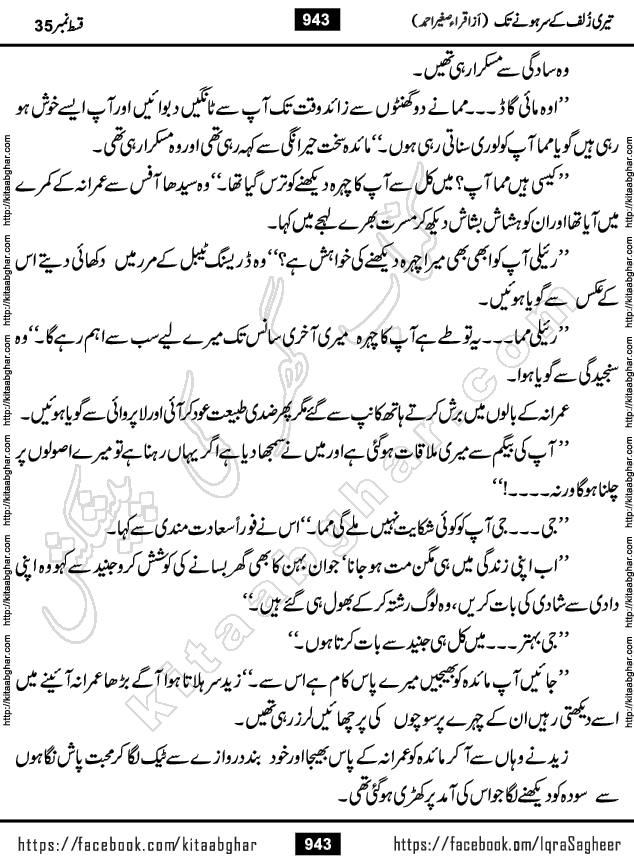 تیری زلف کے سر ہونے تک (از اقراء صغیر احمد) 943 قسط نمبر 35
وہ سادگی سے مسکرا رہی تھیں۔
’’اوہ مائی گاڈ۔۔۔مما نے دو گھنٹوں سے زائد وقت تک آپ سے ٹانگیں دبوائیں اور آپ ایسے خوش ہو
رہی ہیں گویا مما آپ کو لوری سناتی رہی ہوں۔‘‘ مائدہ سخت حیرانگی سے کہہ رہی تھی اور وہ مسکرا رہی تھی۔
’’کیسی ہیں مما آپ؟ میں کل سے آپ کا چہرہ دیکھنے کو ترس گیا تھا۔‘‘ وہ سیدھا آفس سے عمرانہ کے کمرے
میں آیا تھا اور ان کو ہشاش بشاش دیکھ کر مسرت بھرے لہجے میں کہا۔
’’رئیلی آپ کو ابھی بھی میرا چہرہ دیکھنے کی خواہش ہے؟‘‘ وہ ڈریسنگ ٹیبل کے مرر میں دکھائی دیتے اس
کے عکس سے گویا ہوئیں۔
’’رئیلی مما۔۔۔یہ تو طے ہے آپ کا چہرہ میری آخری سانس تک میرے لیے سب سے اہم رہے گا۔‘‘ وہ
سنجیدگی سے گویا ہوا۔
عمرانہ کے بالوں میں برش کرتے ہاتھ کانپ سے گئے مگر پھر ضدی طبیعت عود کر آئی اور لاپروائی سے گویا ہوئیں۔
’’آپ کی بیگم سے میری ملاقات ہو گئی ہے اور میں نے سمجھا دیا ہے اگر یہاں رہنا ہے تو میرے اصولوں پر
چلنا ہوگا ورنہ۔۔۔۔!‘‘
’’جی۔۔۔جی آپ کو کوئی شکایت نہیں ملے گی مما۔‘‘ اس نے فوراً سعادت مندی سے کہا۔
’’اب اپنی زندگی میں ہی مگن مت ہو جانا‘ جوان بہن کا بھی گھر بسانے کی کوشش کرو جنید سے کہو وہ اپنی
دادی سے شادی کی بات کریں، وہ لوگ رشتہ کر کے بھول ہی گئے ہیں۔‘‘
’’جی بہتر۔۔۔میں کل ہی جنید سے بات کرتا ہوں۔‘‘
’’جائیں آپ مائدہ کو بھیجیں میرے پاس کام ہے اس سے۔‘‘ زید سر ہلاتا ہوا آگے بڑھا عمرانہ آئینے میں
اسے دیکھتی رہیں ان کے چہرے پر سوچوں کی پرچھائیں لرز رہی تھیں۔
زید نے وہاں سے آ کر مائدہ کو عمرانہ کے پاس بھیجا اور خود بند دروازے سے ٹیک لگا کر محبت پاش نگاہوں
سے سودہ کو دیکھنے لگا جو اس کی آمد پر کھڑی ہو گئی تھی۔
https://facebook.com/kitaabghar 943 https://facebook.om/IqraSagheer
http://kitaabghar.com http://kitaabghar.com http://kitaabghar.com http://kitaabghar.com http://kitaabghar.com http://kitaabghar.com
http://kitaabghar.com http://kitaabghar.com http://kitaabghar.com http://kitaabghar.com http://kitaabghar.com http://kitaabghar.com
کتاب گھر کی پیشکش
kitaabghar.com